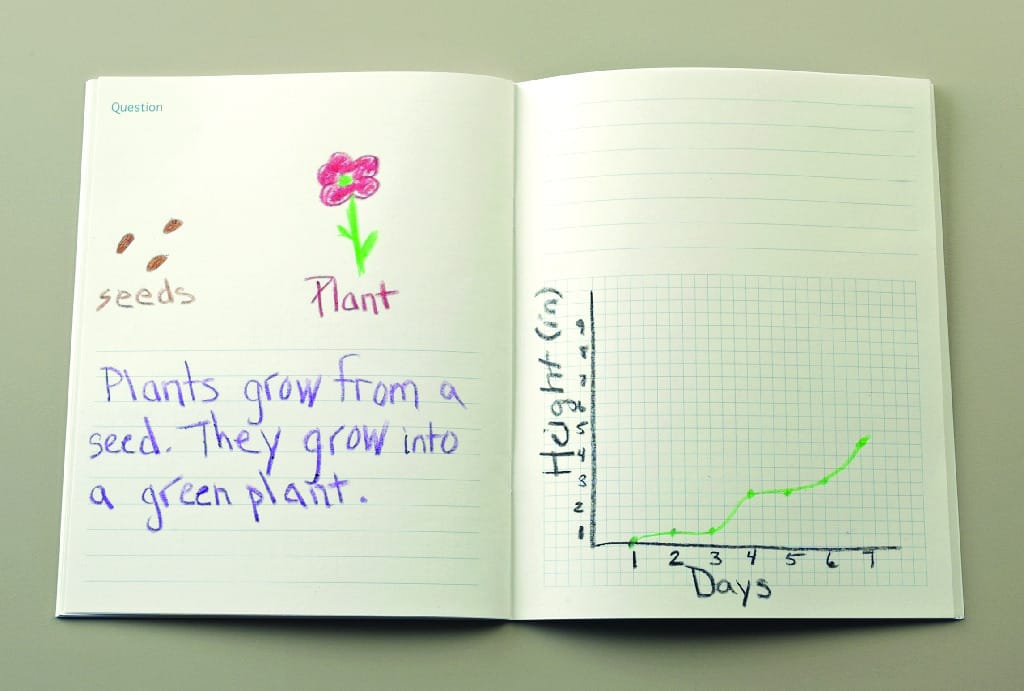 Question
seeds
Plant
Plants grow from a
seed. They grow into
a green plant.
Height (in)
5
4
3
2
1
1 2 3 4 5 6 7
Days